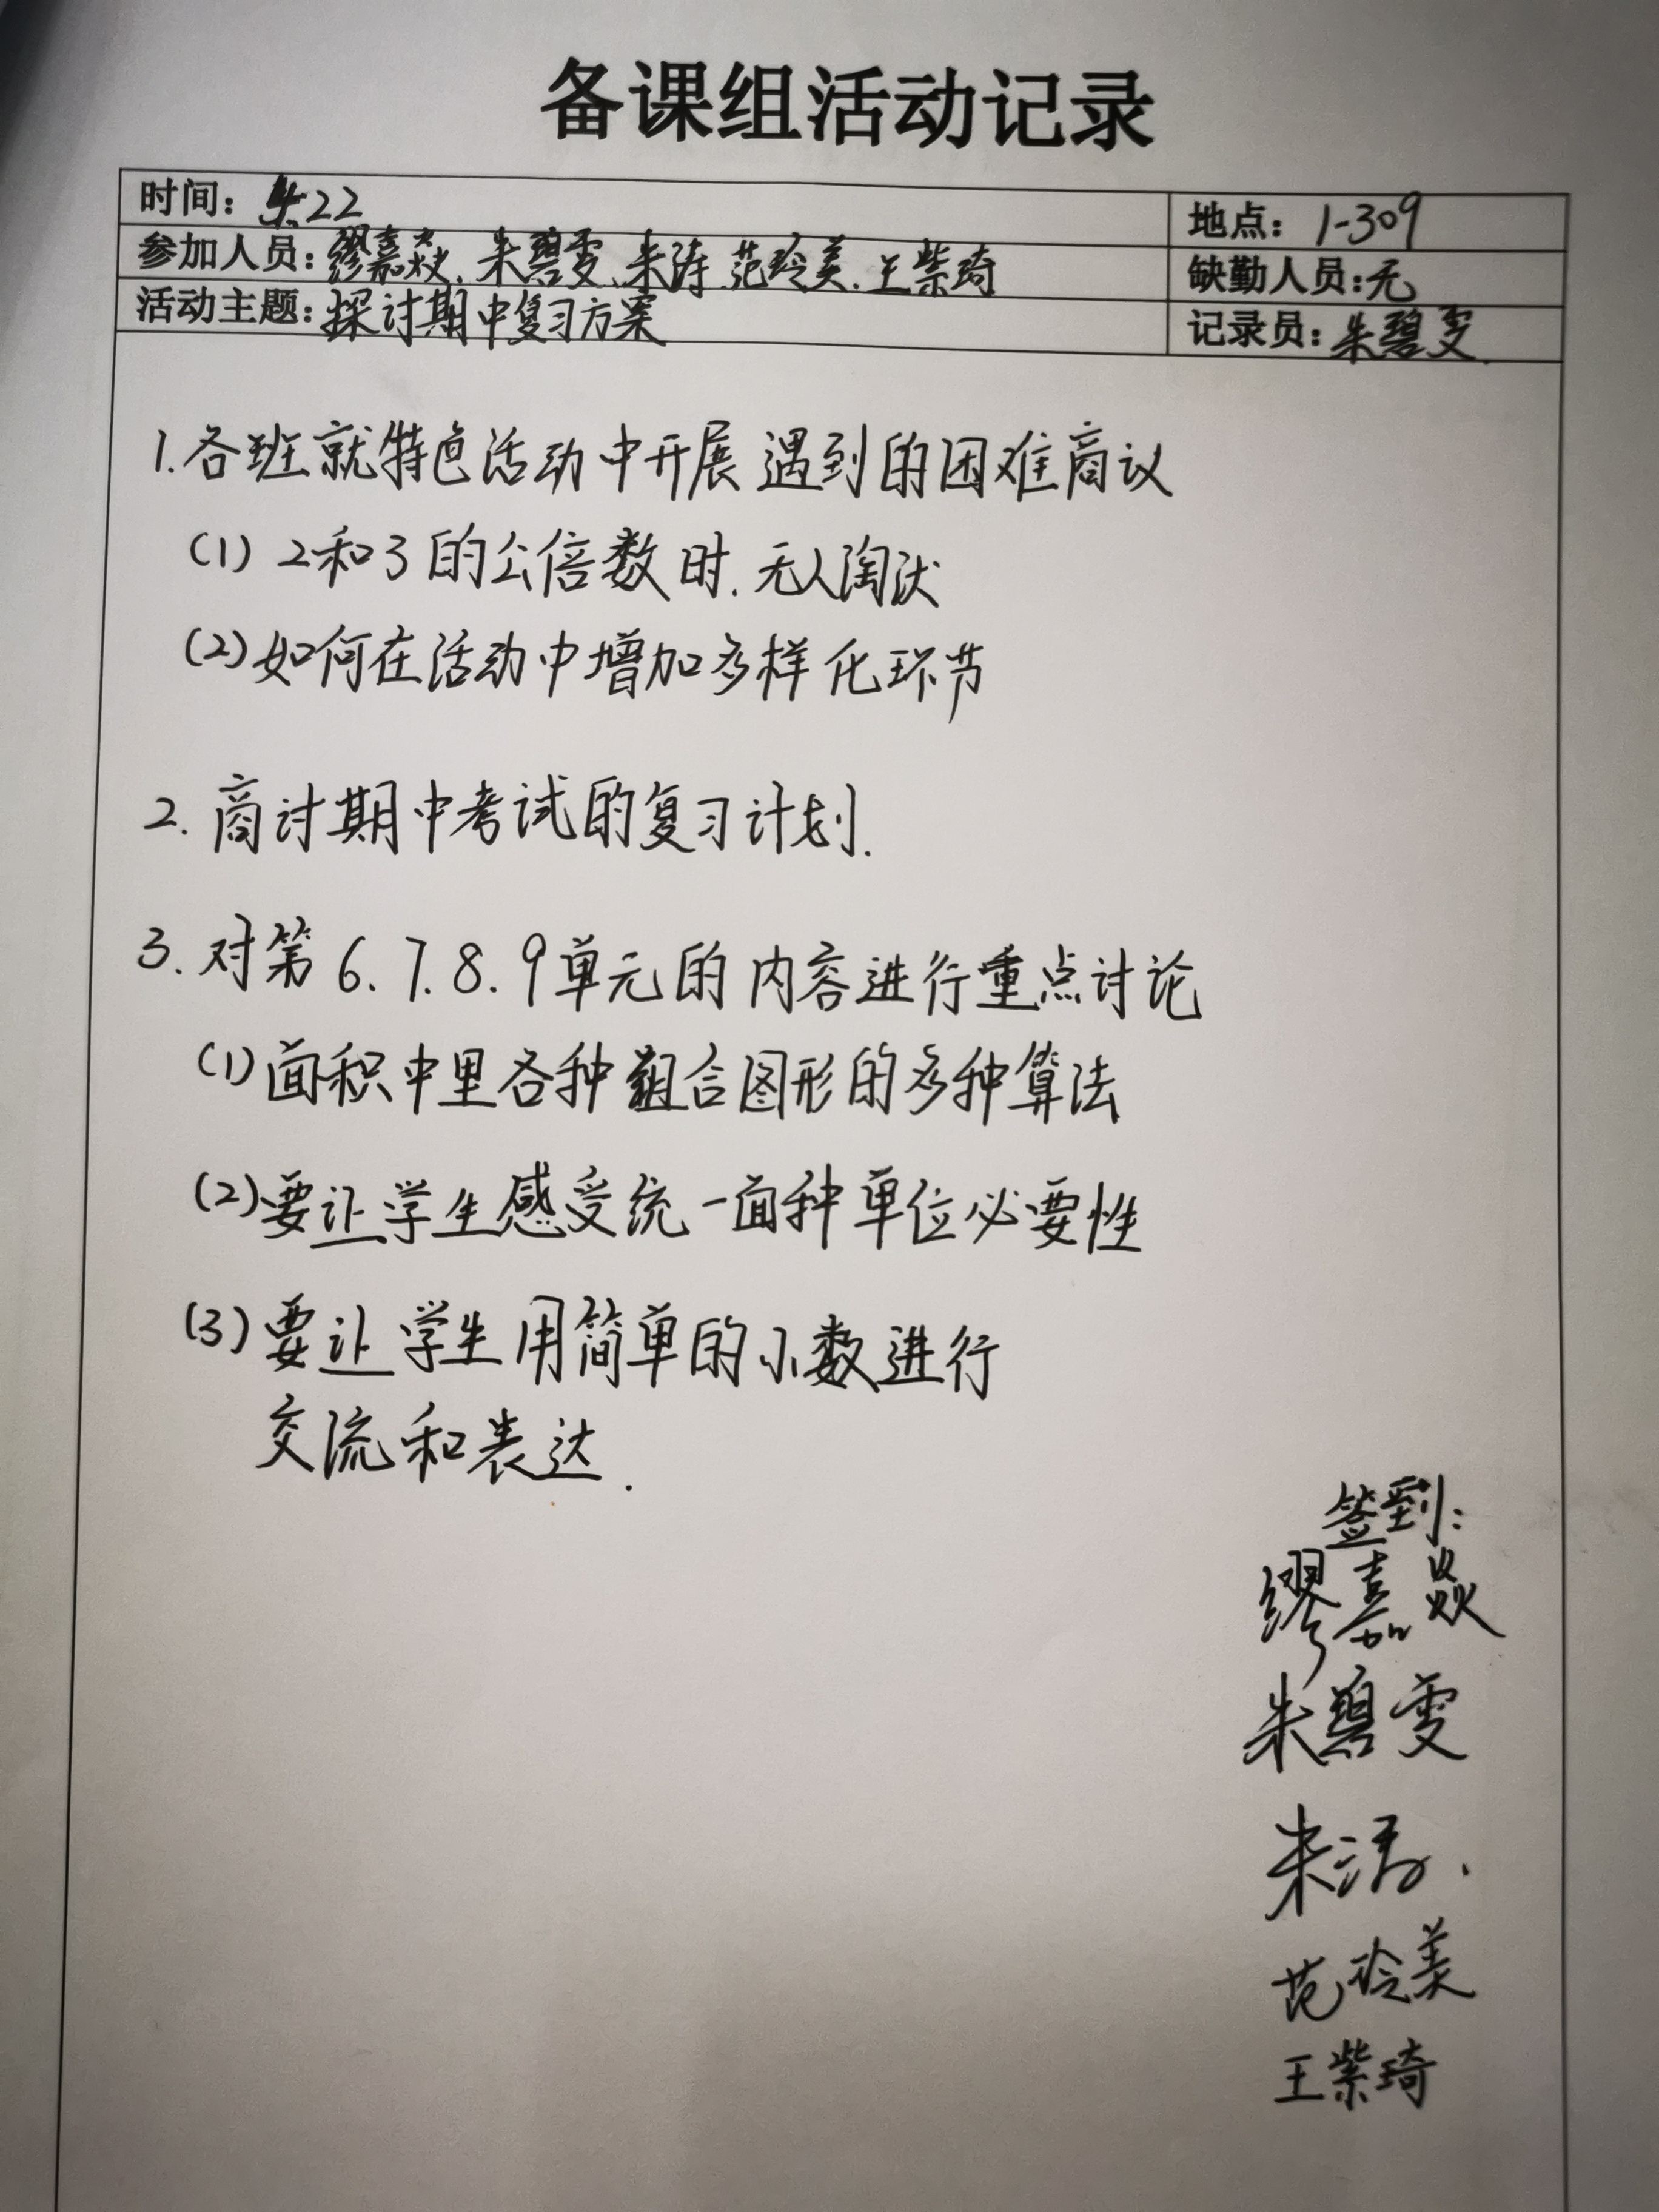 备课组活动记录
时间：4.22 地点：1-309
参加人员：缪嘉焱、朱碧雯、朱涛、范玲美、王紫琦 缺勤人员：无
活动主题：探讨期中复习方案 记录员：朱碧雯
1.各班就特色活动中开展遇到的困难商议
(1)2和3的公倍数时.无人淘汰
(2)如何在活动中增加多样化环节
2.商讨期中考试的复习计划.
3.对第6.7.8.9单元的内容进行重点讨论
(1)面积中里各种组合图形的多种算法
(2)要让学生感受统一面种单位必要性
(3)要让学生用简单的小数进行
交流和表达.
签到：
缪嘉焱
朱碧雯
朱涛.
范玲美
王紫琦